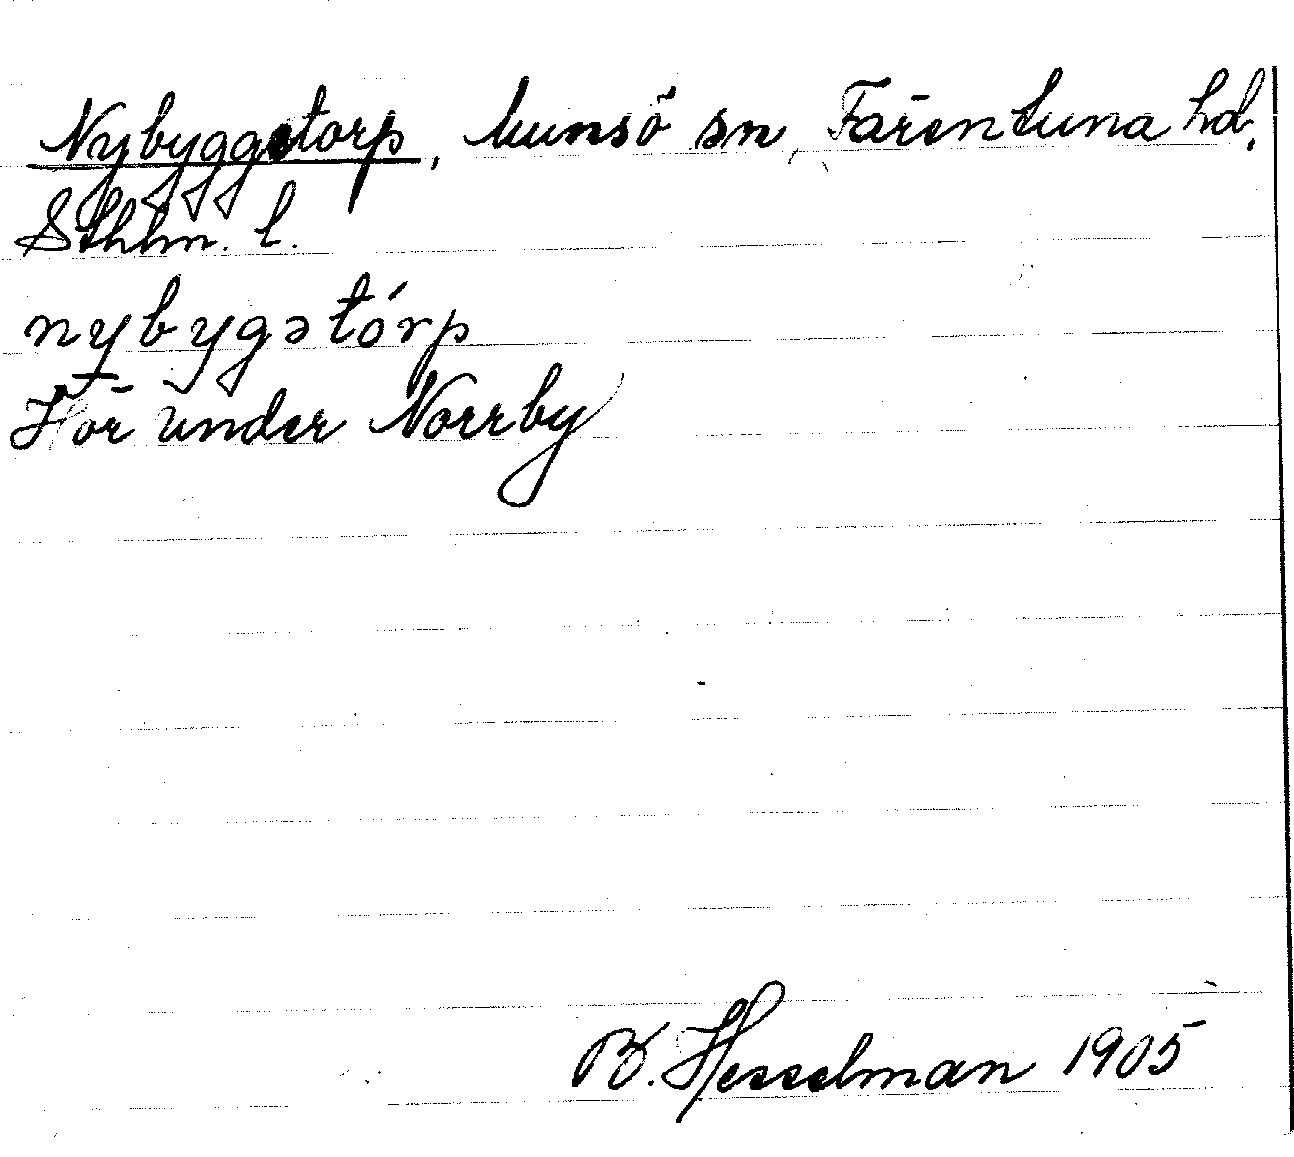 Nybyggetorp, Munsö sn, Färentuna hd,
Sthlm. l.
nybygətórp
Hör under Norrby
B. Hesselman 1905